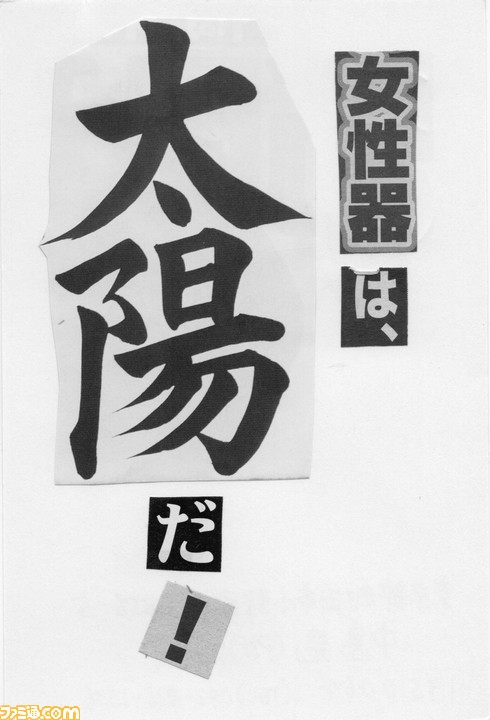 女性器
は、
太陽
だ
！
ファミ通.com